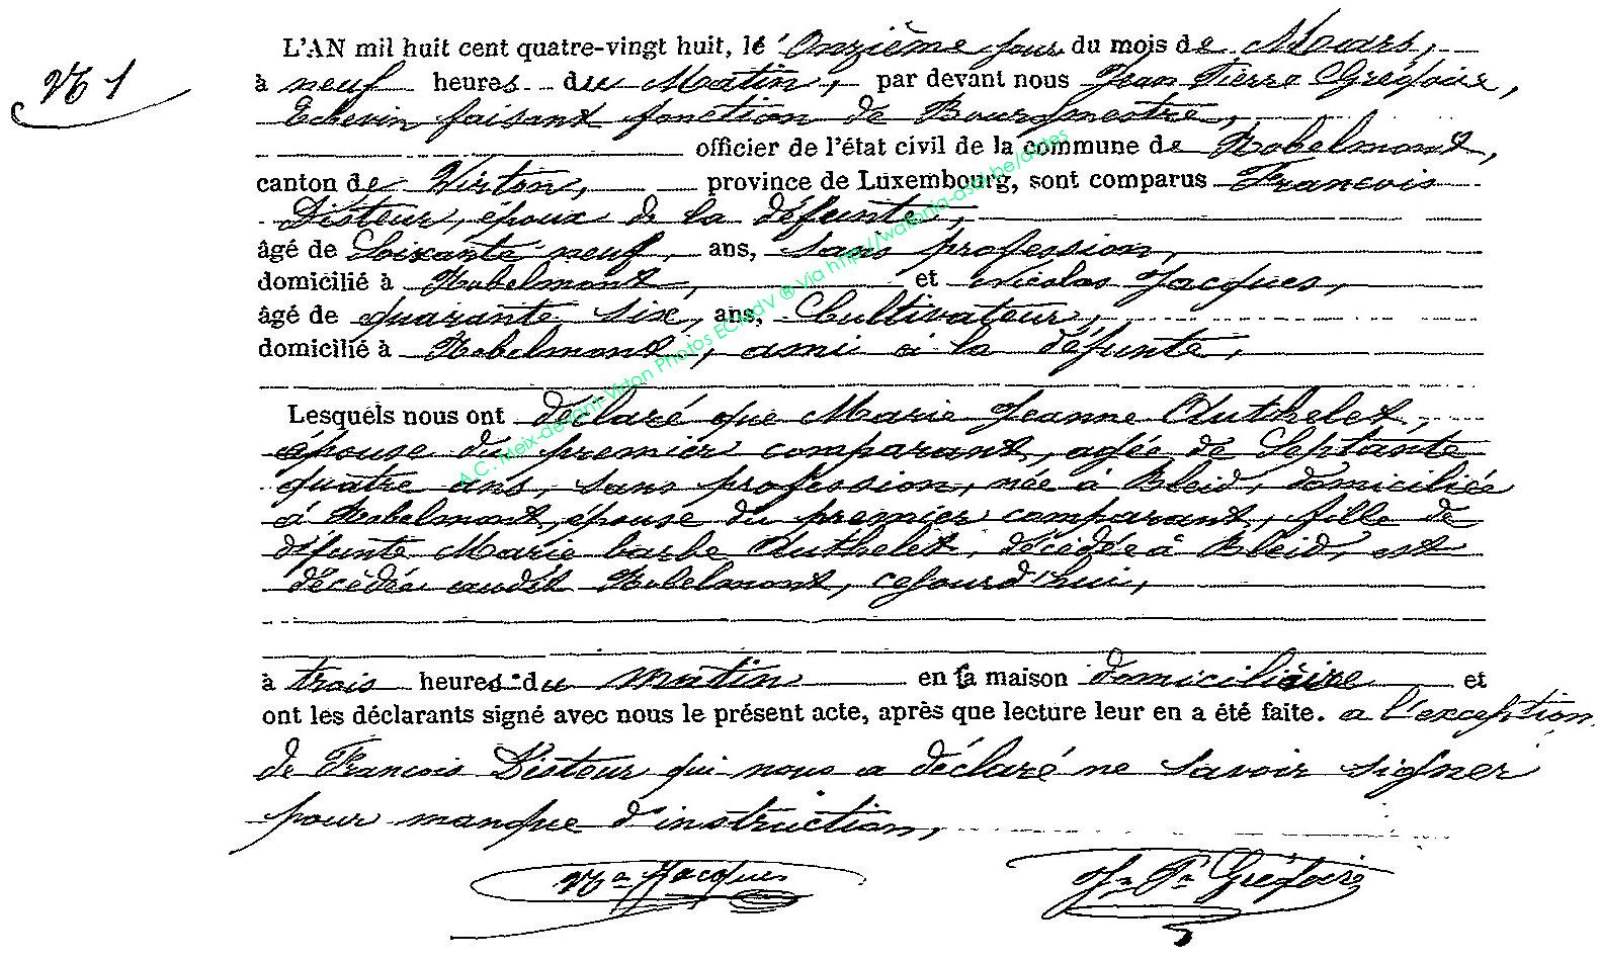 N° 1
L'AN mil huit cent quatre-vingt huit, le Onzième jour du mois de Mars,
à neuf heures du Matin, par devant nous Jean Pierre Grégoire,
Echevin faisant fonction de Bourgmestre,
officier de l'état civil de la commune de Robelmont,
canton de Virton, province de Luxembourg, sont comparus Francois
Disteur, époux de la défunte,
âgé de Soixante neuf, ans, sans profession,
domicilié à Robelmont, et Nicolas Jacques,
âgé de quarante six, ans, Cultivateur,
domicilié à Robelmont, ami à la défunte,
Lesquels nous ont déclaré que Marie Jeanne Authelet,
épouse du premier comparant, agée de Septante
quatre ans, sans profession, née à Bleid, domiciliée
à Robelmont, épouse du premier comparant, fille de
défunte Marie barbe Authelet, décédée à Bleid, est
décédée audit Robelmont, cejourd'hui,
à trois heures du matin en sa maison domiciliaire et
ont les déclarants signé avec nous le présent acte, après que lecture leur en a été faite. a l'exception
de Francois Disteur qui nous a déclaré ne savoir signer
pour manque d'instruction,
Nas Jacques Jn Pre Grégoire
A.C. Meix-devant-Virton Photos ECMdV ® Via http://wallonia-asbl.be/actes